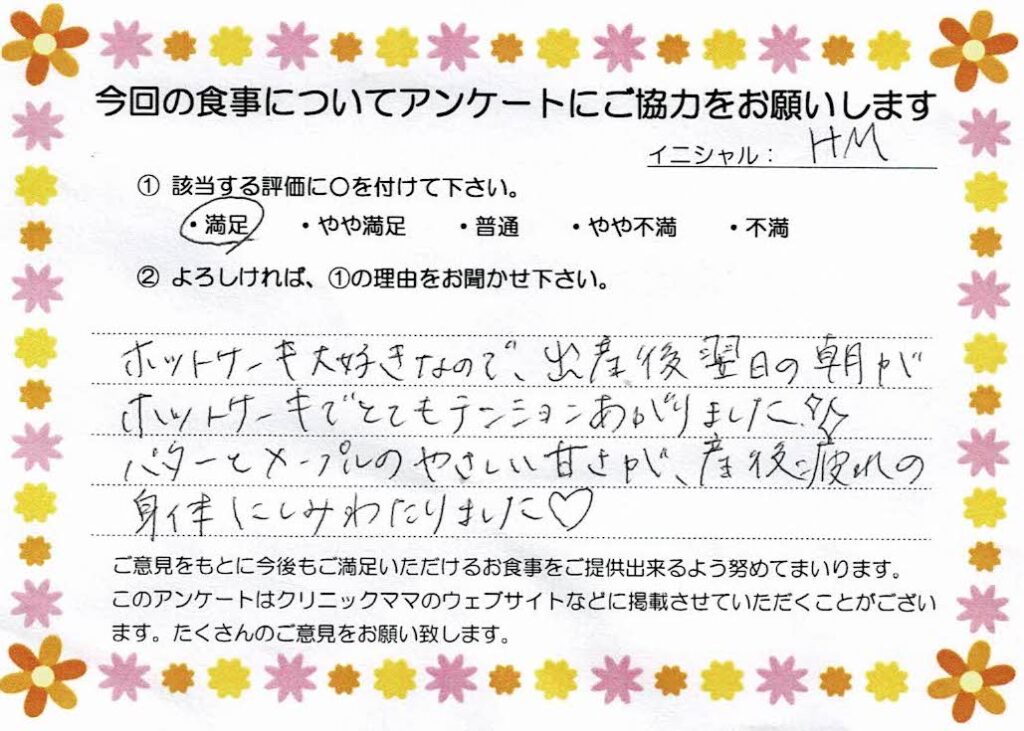 今回の食事についてアンケートにご協力をお願いします
イニシャル： HM
① 該当する評価に〇を付けて下さい。
・満足 ・やや満足 ・普通 ・やや不満 ・不満
② よろしければ、①の理由をお聞かせ下さい。
ホットケーキ大好きなので、出産後翌日の朝が
ホットケーキでとてもテンションあがりました!!
バターとメープルのやさしい甘さが、産後に疲れの
身体にしみわたりました♡
ご意見をもとに今後もご満足いただけるお食事をご提供出来るよう努めてまいります。
このアンケートはクリニックママのウェブサイトなどに掲載させていただくことがござい
ます。たくさんのご意見をお願い致します。